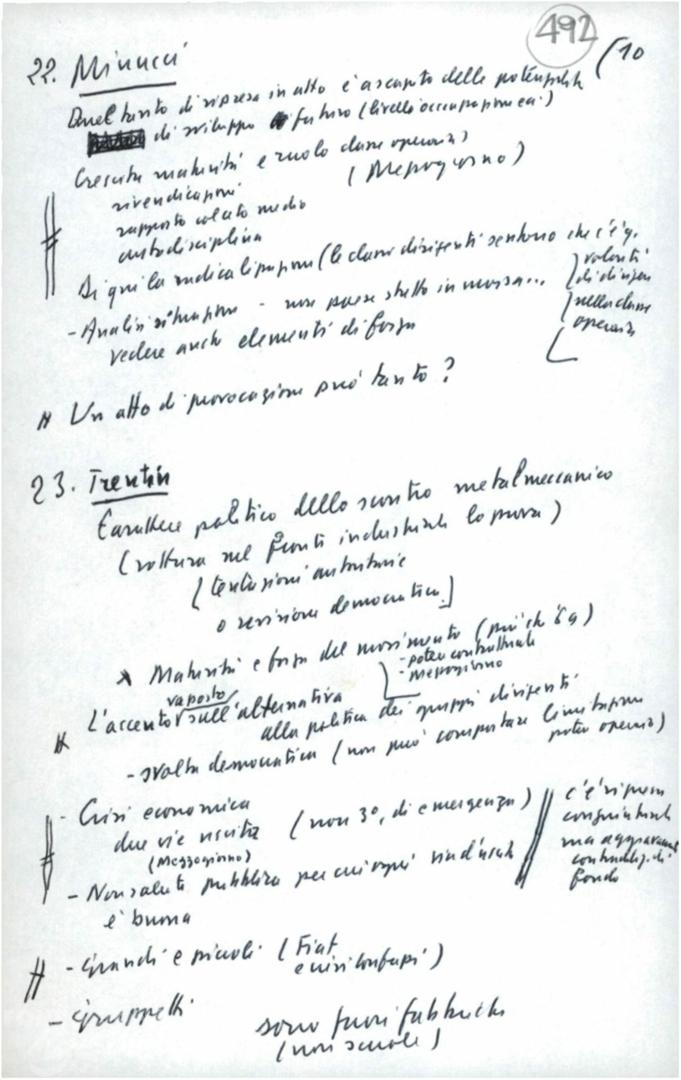 492
(10
22. Minucci
Quel tanto di ripresa in atto è a scapito delle potenzialità
di sviluppo futuro (livello occupazione ecc.)
Crescita maturità e ruolo classe operaia
rivendicazioni (Mezzogiorno)
rapporto salario medio
autodisciplina
Di qui la radicalizzazione (le classi dirigenti sentono che c'è q.
volontà
di dirigere
nella classe
operaia
- Analisi situazione - non paese stretto in morsa...
vedere anche elementi di forza
Un atto di provocazione può tanto?
23. Trentin
Carattere politico dello scontro metalmeccanico
(rottura nel fronte industriale lo prova)
(tentazioni autoritarie
o revisione democratica)
Maturità e forza del movimento (più che '69)
- potere contrattuale
- mezzogiorno
L'accento va posto sull'alternativa
alla politica dei gruppi dirigenti
- svolta democratica (non può comportare limitazione
potere operaio)
- Crisi economica
due vie uscita (non 3°, di emergenza)
(Mezzogiorno)
c'è ripresa
congiunturale
ma aggravarsi
contraddiz. di
fondo
- Non salute pubblica per cui ogni via d'uscita
è buona
- Grandi e piccoli (Fiat
e
- Gruppetti
sono fuori fabbriche
(non scuole)